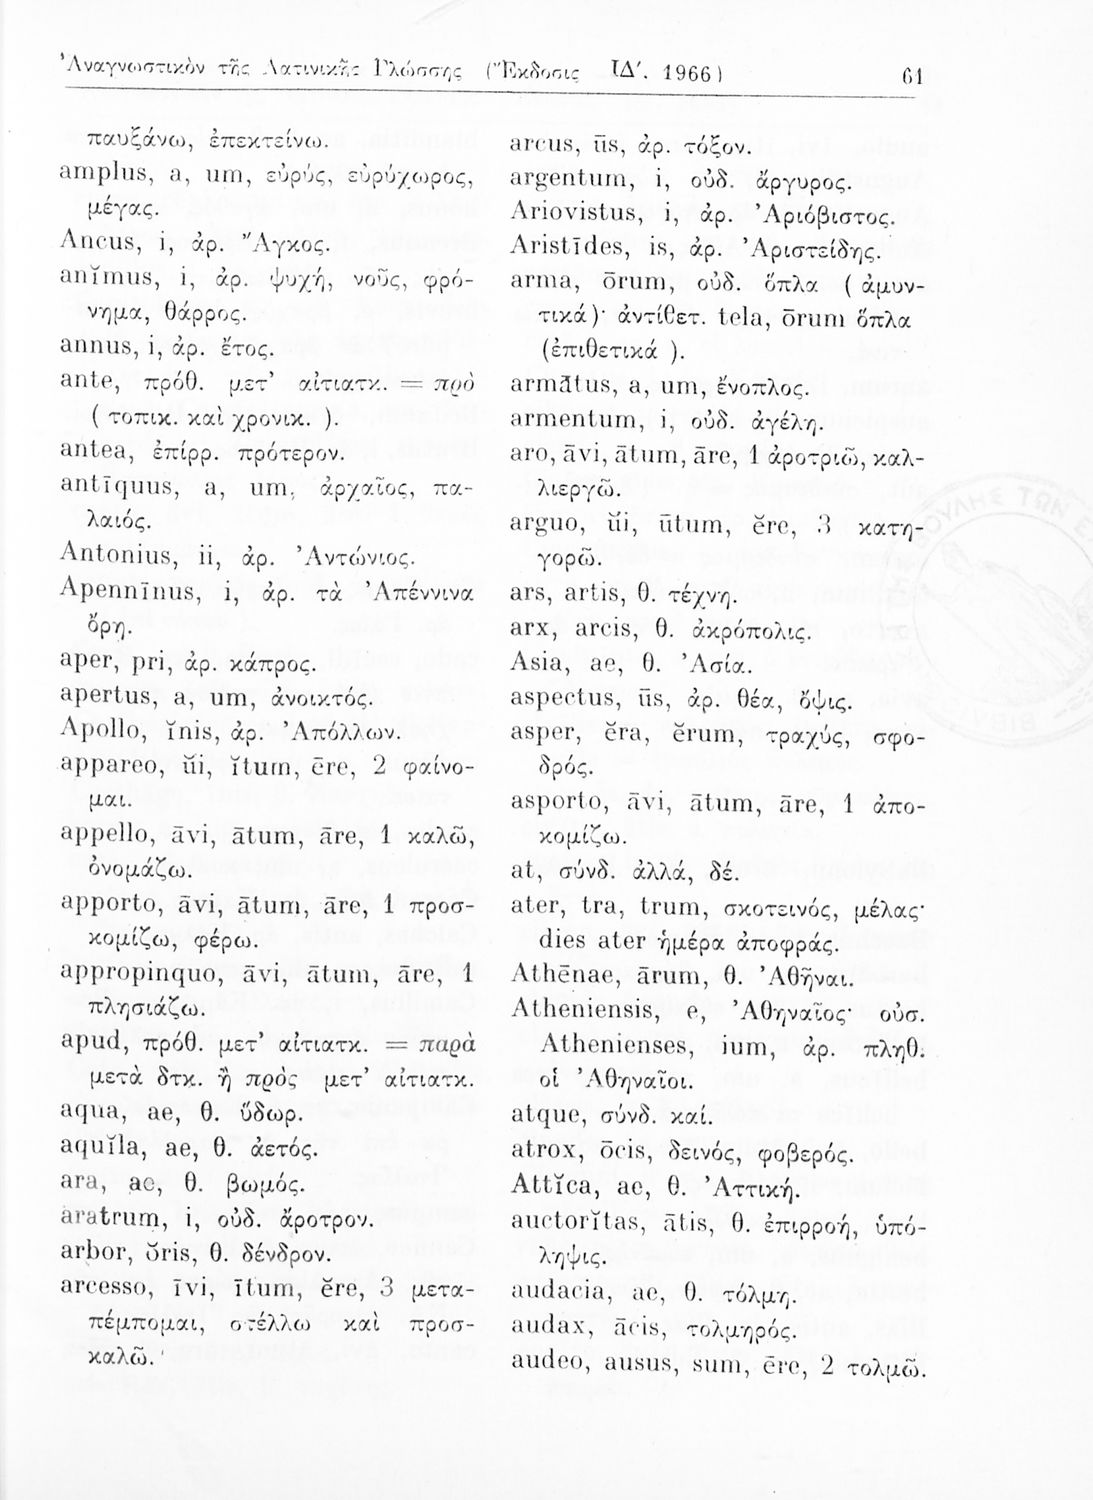 Ἀναγνωστικὸν τῆς Λατινικῆς Γλώσσης (Ἔκδοσις ΙΔ′. 1966) 61
παυξάνω, ἐπεκτείνω.
amplus, a, um, εὐρύς, εὐρύχωρος,
μέγας.
Ancus, i, ἀρ. Ἄγκος.
anĭmus, i, ἀρ. ψυχή, νοῦς, φρό-
νημα, θάρρος.
annus, i, ἀρ. ἔτος.
ante, πρόθ. μετ’ αἰτιατκ. = πρὸ
( τοπικ. καὶ χρονικ. ).
antea, ἐπίρρ. πρότερον.
antīquus, a, um, ἀρχαῖος, πα-
λαιός.
Antonius, ii, ἀρ. Ἀντώνιος.
Apennīnus, i, ἀρ. τὰ Ἀπέννινα
ὄρη.
aper, pri, ἀρ. κάπρος.
apertus, a, um, ἀνοικτός.
Apollo, ĭnis, ἀρ. Ἀπόλλων.
appareo, ŭi, ĭtum, ēre, 2 φαίνο-
μαι.
appello, āvi, ātum, āre, 1 καλῶ,
ὀνομάζω.
apporto, āvi, ātum, āre, 1 προσ-
κομίζω, φέρω.
appropinquo, āvi, ātum, āre, 1
πλησιάζω.
apud, πρόθ. μετ’ αἰτιατκ. = παρὰ
μετὰ δτκ. ἢ πρὸς μετ’ αἰτιατκ.
aqua, ae, θ. ὕδωρ.
aquĭla, ae, θ. ἀετός.
ara, ae, θ. βωμός.
aratrum, i, οὐδ. ἄροτρον.
arbor, ŏris, θ. δένδρον.
arcesso, īvi, ītum, ĕre, 3 μετα-
πέμπομαι, στέλλω καὶ προσ-
καλῶ.
arcus, ūs, ἀρ. τόξον.
argentum, i, οὐδ. ἄργυρος.
Ariovistus, i, ἀρ. Ἀριόβιστος.
Aristīdes, is, ἀρ. Ἀριστείδης.
arma, ōrum, οὐδ. ὅπλα ( ἀμυν-
τικά)· ἀντίθετ. tela, ōrum ὅπλα
(ἐπιθετικά ).
armātus, a, um, ἔνοπλος.
armentum, i, οὐδ. ἀγέλη.
aro, āvi, ātum, āre, 1 ἀροτριῶ, καλ-
λιεργῶ.
arguo, ŭi, ūtum, ĕre, 3 κατη-
γορῶ.
ars, artis, θ. τέχνη.
arx, arcis, θ. ἀκρόπολις.
Asia, ae, θ. Ἀσία.
aspectus, ūs, ἀρ. θέα, ὄψις.
asper, ĕra, ĕrum, τραχύς, σφο-
δρός.
asporto, āvi, ātum, āre, 1 ἀπο-
κομίζω.
at, σύνδ. ἀλλά, δέ.
ater, tra, trum, σκοτεινός, μέλας·
dies ater ἡμέρα ἀποφράς.
Athēnae, ārum, θ. Ἀθῆναι.
Atheniensis, e, Ἀθηναῖος· οὐσ.
Athenienses, ium, ἀρ. πληθ.
οἱ Ἀθηναῖοι.
atque, σύνδ. καί.
atrox, ōcis, δεινός, φοβερός.
Attĭca, ae, θ. Ἀττική.
auctorĭtas, ātis, θ. ἐπιρροή, ὑπό-
ληψις.
audacia, ae, θ. τόλμη.
audax, ācis, τολμηρός.
audeo, ausus, sum, ēre, 2 τολμῶ.